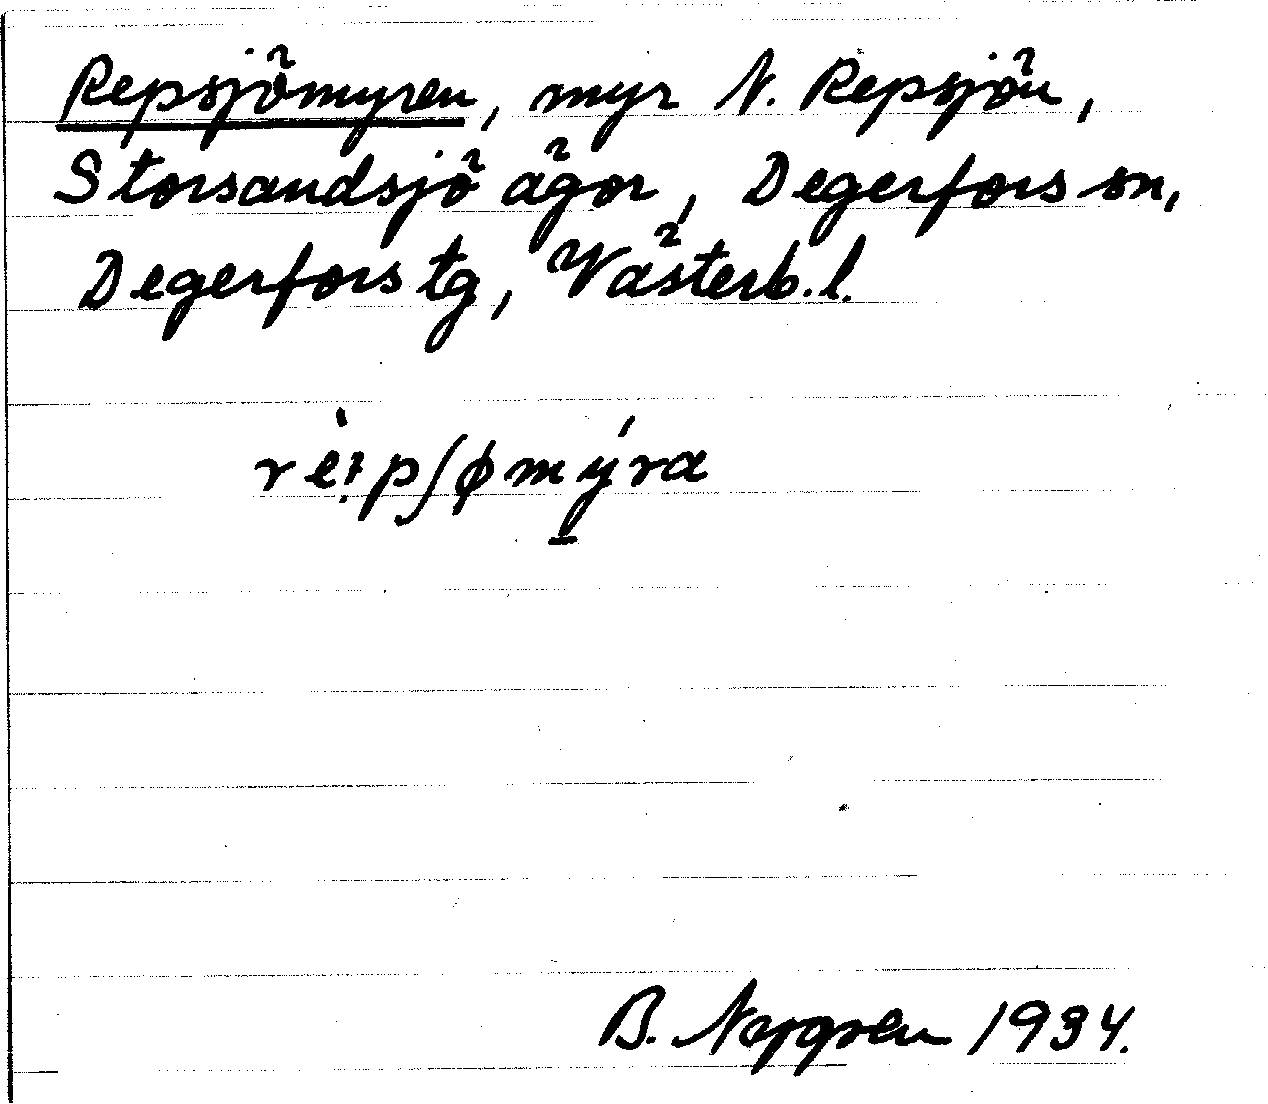 Repsjömyren, myr N. Repsjön,
Storsandsjö ägor, Degerfors sn,
Degerfors tg, Västerb. l.
rè꞉pʃømýra
B. Nygren 1934.